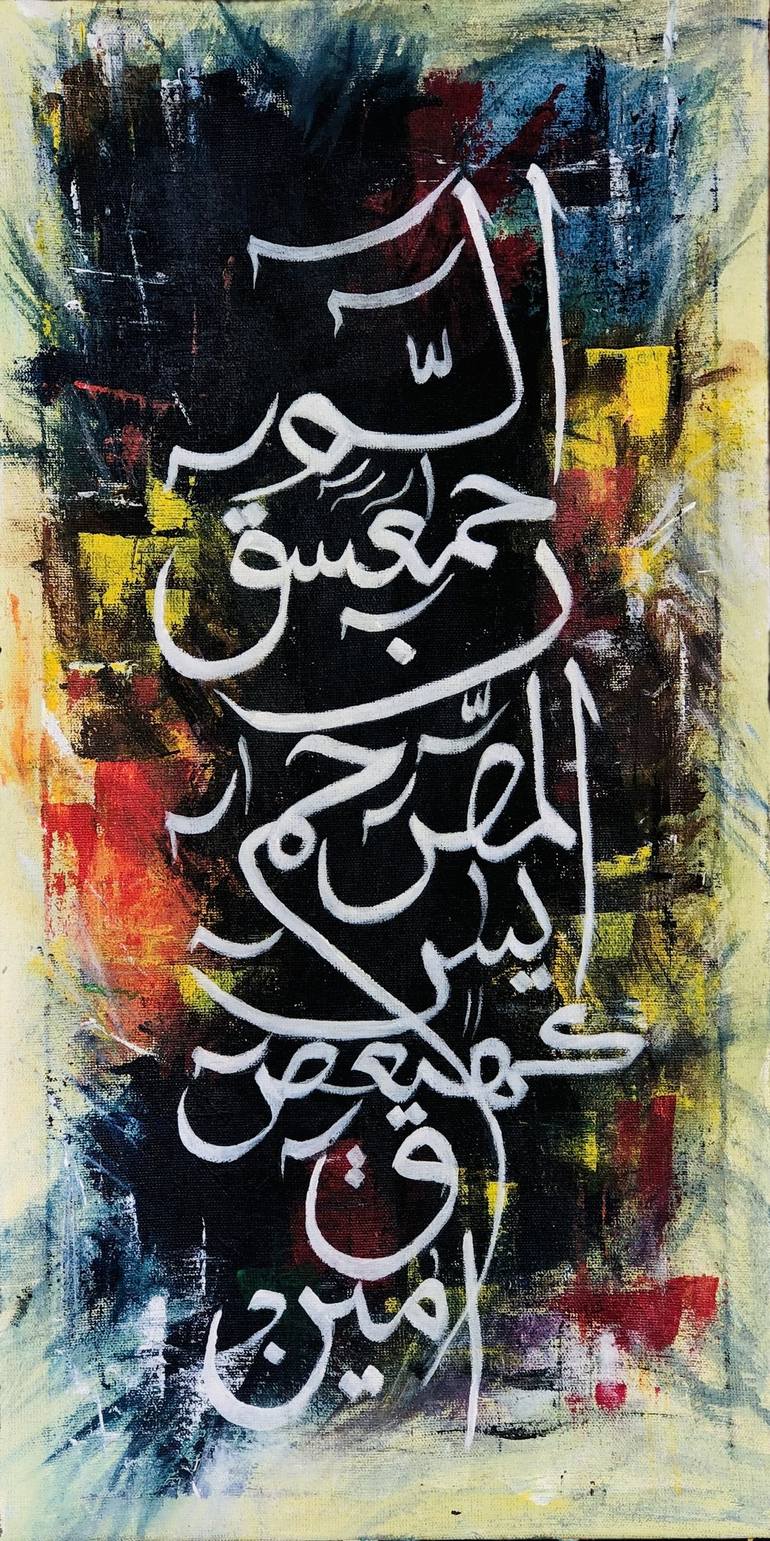 المّر
حمعسق
ن
المصّ حم
يس
كهيعص
ق
امين